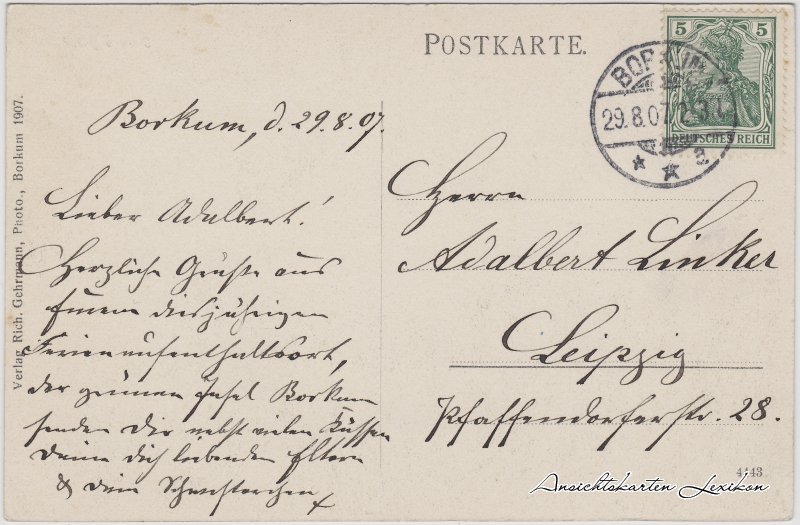 POSTKARTE.
5 5
DEUTSCHES REICH
BORKUM
29.8.07
a
Borkum, d. 29.8.07.
Lieber Adalbert!
Herzliche Grüße aus
Ihrem diesjährigen
Ferienaufenthaltsort,
der grünen Insel Borkum
senden Dir nebst vielen Küssen
Deine Dich liebenden Eltern
& Dein Schwesterchen
Herrn
Adalbert Linker
Leipzig
Pfaffendorferstr. 28.
Verlag Rich. Gehrmann, Photo., Borkum 1907.
4443
Ansichtskarten Lexikon